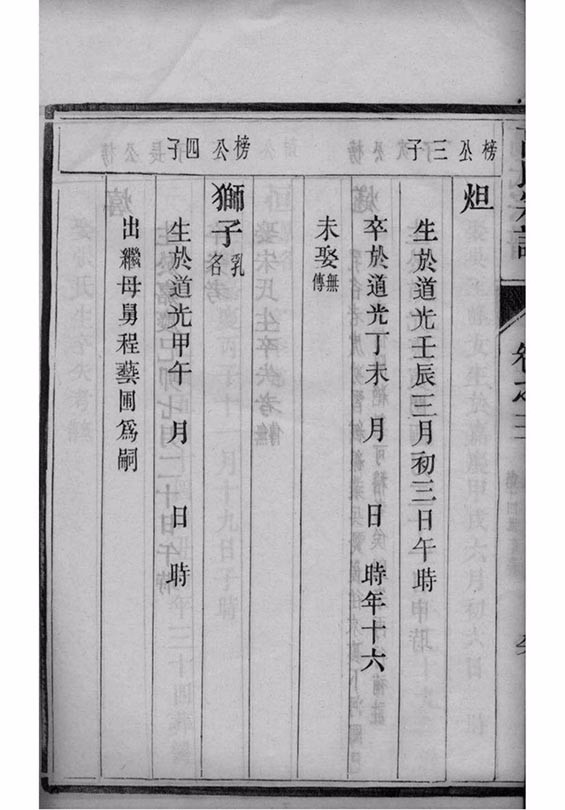 卷之三
榜公三子
炟
生於道光壬辰三月初三日午時
卒於道光丁未 月 日 時年十六
未娶無傳
榜公四子
獅子乳名
生於道光甲午 月 日 時
出繼母舅程藝圃爲嗣